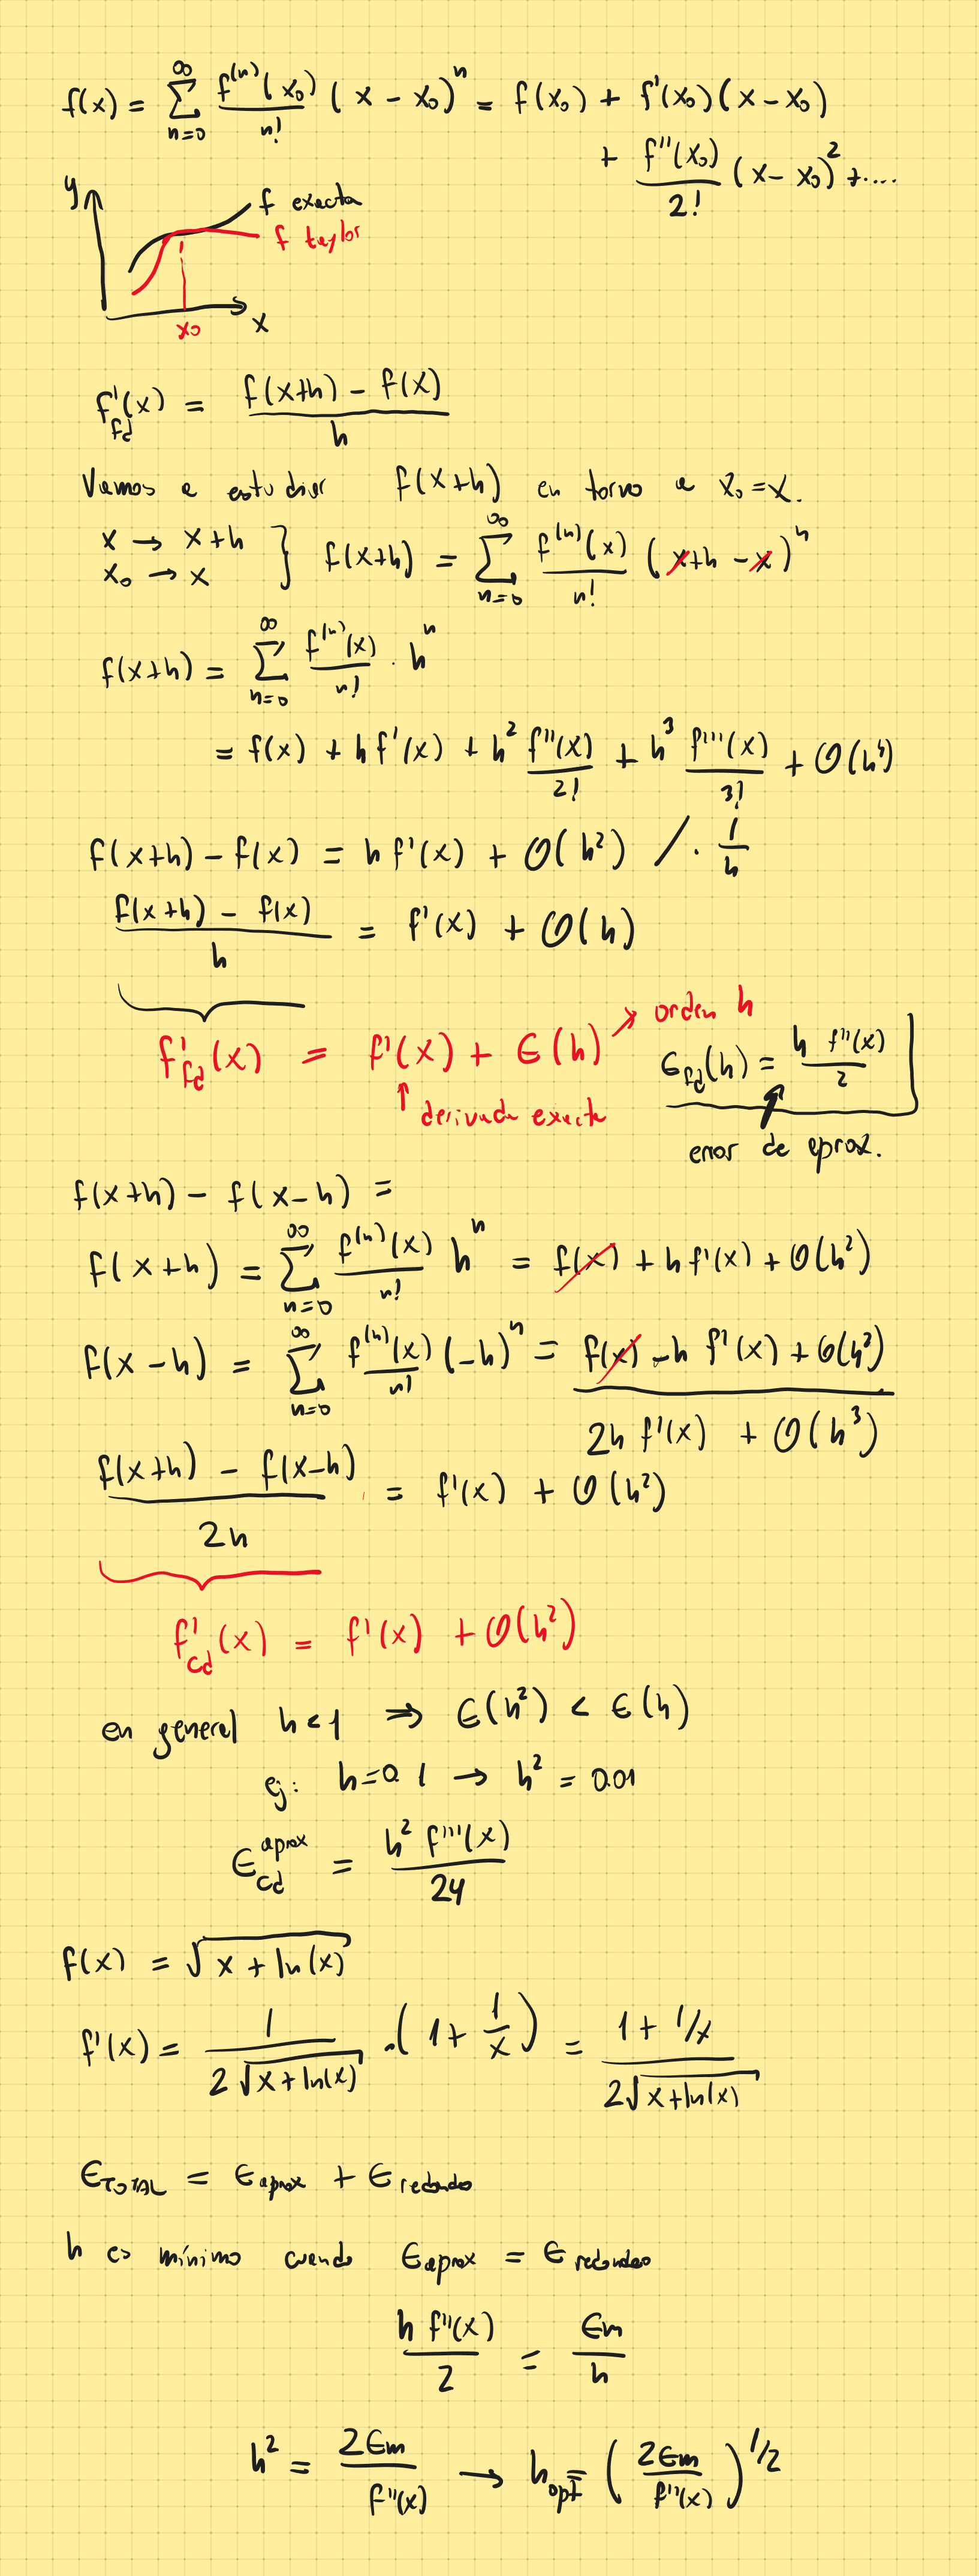 f(x) = ∑_{n=0}^{∞} f^{(n)}(x₀)/n! (x - x₀)^n = f(x₀) + f'(x₀)(x - x₀)
+ f''(x₀)/2! (x - x₀)² + ....
y
f exacta
f taylor
x₀
x
f'_{fd}(x) = (f(x+h) - f(x))/h
Vamos a estudiar f(x+h) en torno a x₀ = x.
x → x+h
x₀ → x } f(x+h) = ∑_{n=0}^{∞} f^{(n)}(x)/n! (x+h - x)^n
f(x+h) = ∑_{n=0}^{∞} f^{(n)}(x)/n! · h^n
= f(x) + h f'(x) + h² f''(x)/2! + h³ f'''(x)/3! + O(h⁴)
f(x+h) - f(x) = h f'(x) + O(h²) / · 1/h
(f(x+h) - f(x))/h = f'(x) + O(h)
f'_{fd}(x) = f'(x) + ϵ(h) → orden h
↑ derivada exacta
ϵ_{fd}(h) = h f''(x)/2
error de aprox.
f(x+h) - f(x-h) =
f(x+h) = ∑_{n=0}^{∞} f^{(n)}(x)/n! h^n = f(x) + h f'(x) + O(h²)
f(x-h) = ∑_{n=0}^{∞} f^{(n)}(x)/n! (-h)^n = f(x) - h f'(x) + O(h²)
2h f'(x) + O(h³)
(f(x+h) - f(x-h))/2h = f'(x) + O(h²)
f'_{cd}(x) = f'(x) + O(h²)
en general h < 1 ⇒ ϵ(h²) < ϵ(h)
ej: h = 0.1 → h² = 0.01
ϵ_{cd}^{aprox} = h² f'''(x)/24
f(x) = √(x + ln(x))
f'(x) = 1/(2√(x + ln(x))) · (1 + 1/x) = (1 + 1/x)/(2√(x + ln(x)))
ϵ_{TOTAL} = ϵ_{aprox} + ϵ_{redondeo}
h es mínimo cuando ϵ_{aprox} = ϵ_{redondeo}
h f''(x)/2 = ϵm/h
h² = 2ϵm/f''(x) → h_{opt} = (2ϵm/f''(x))^{1/2}